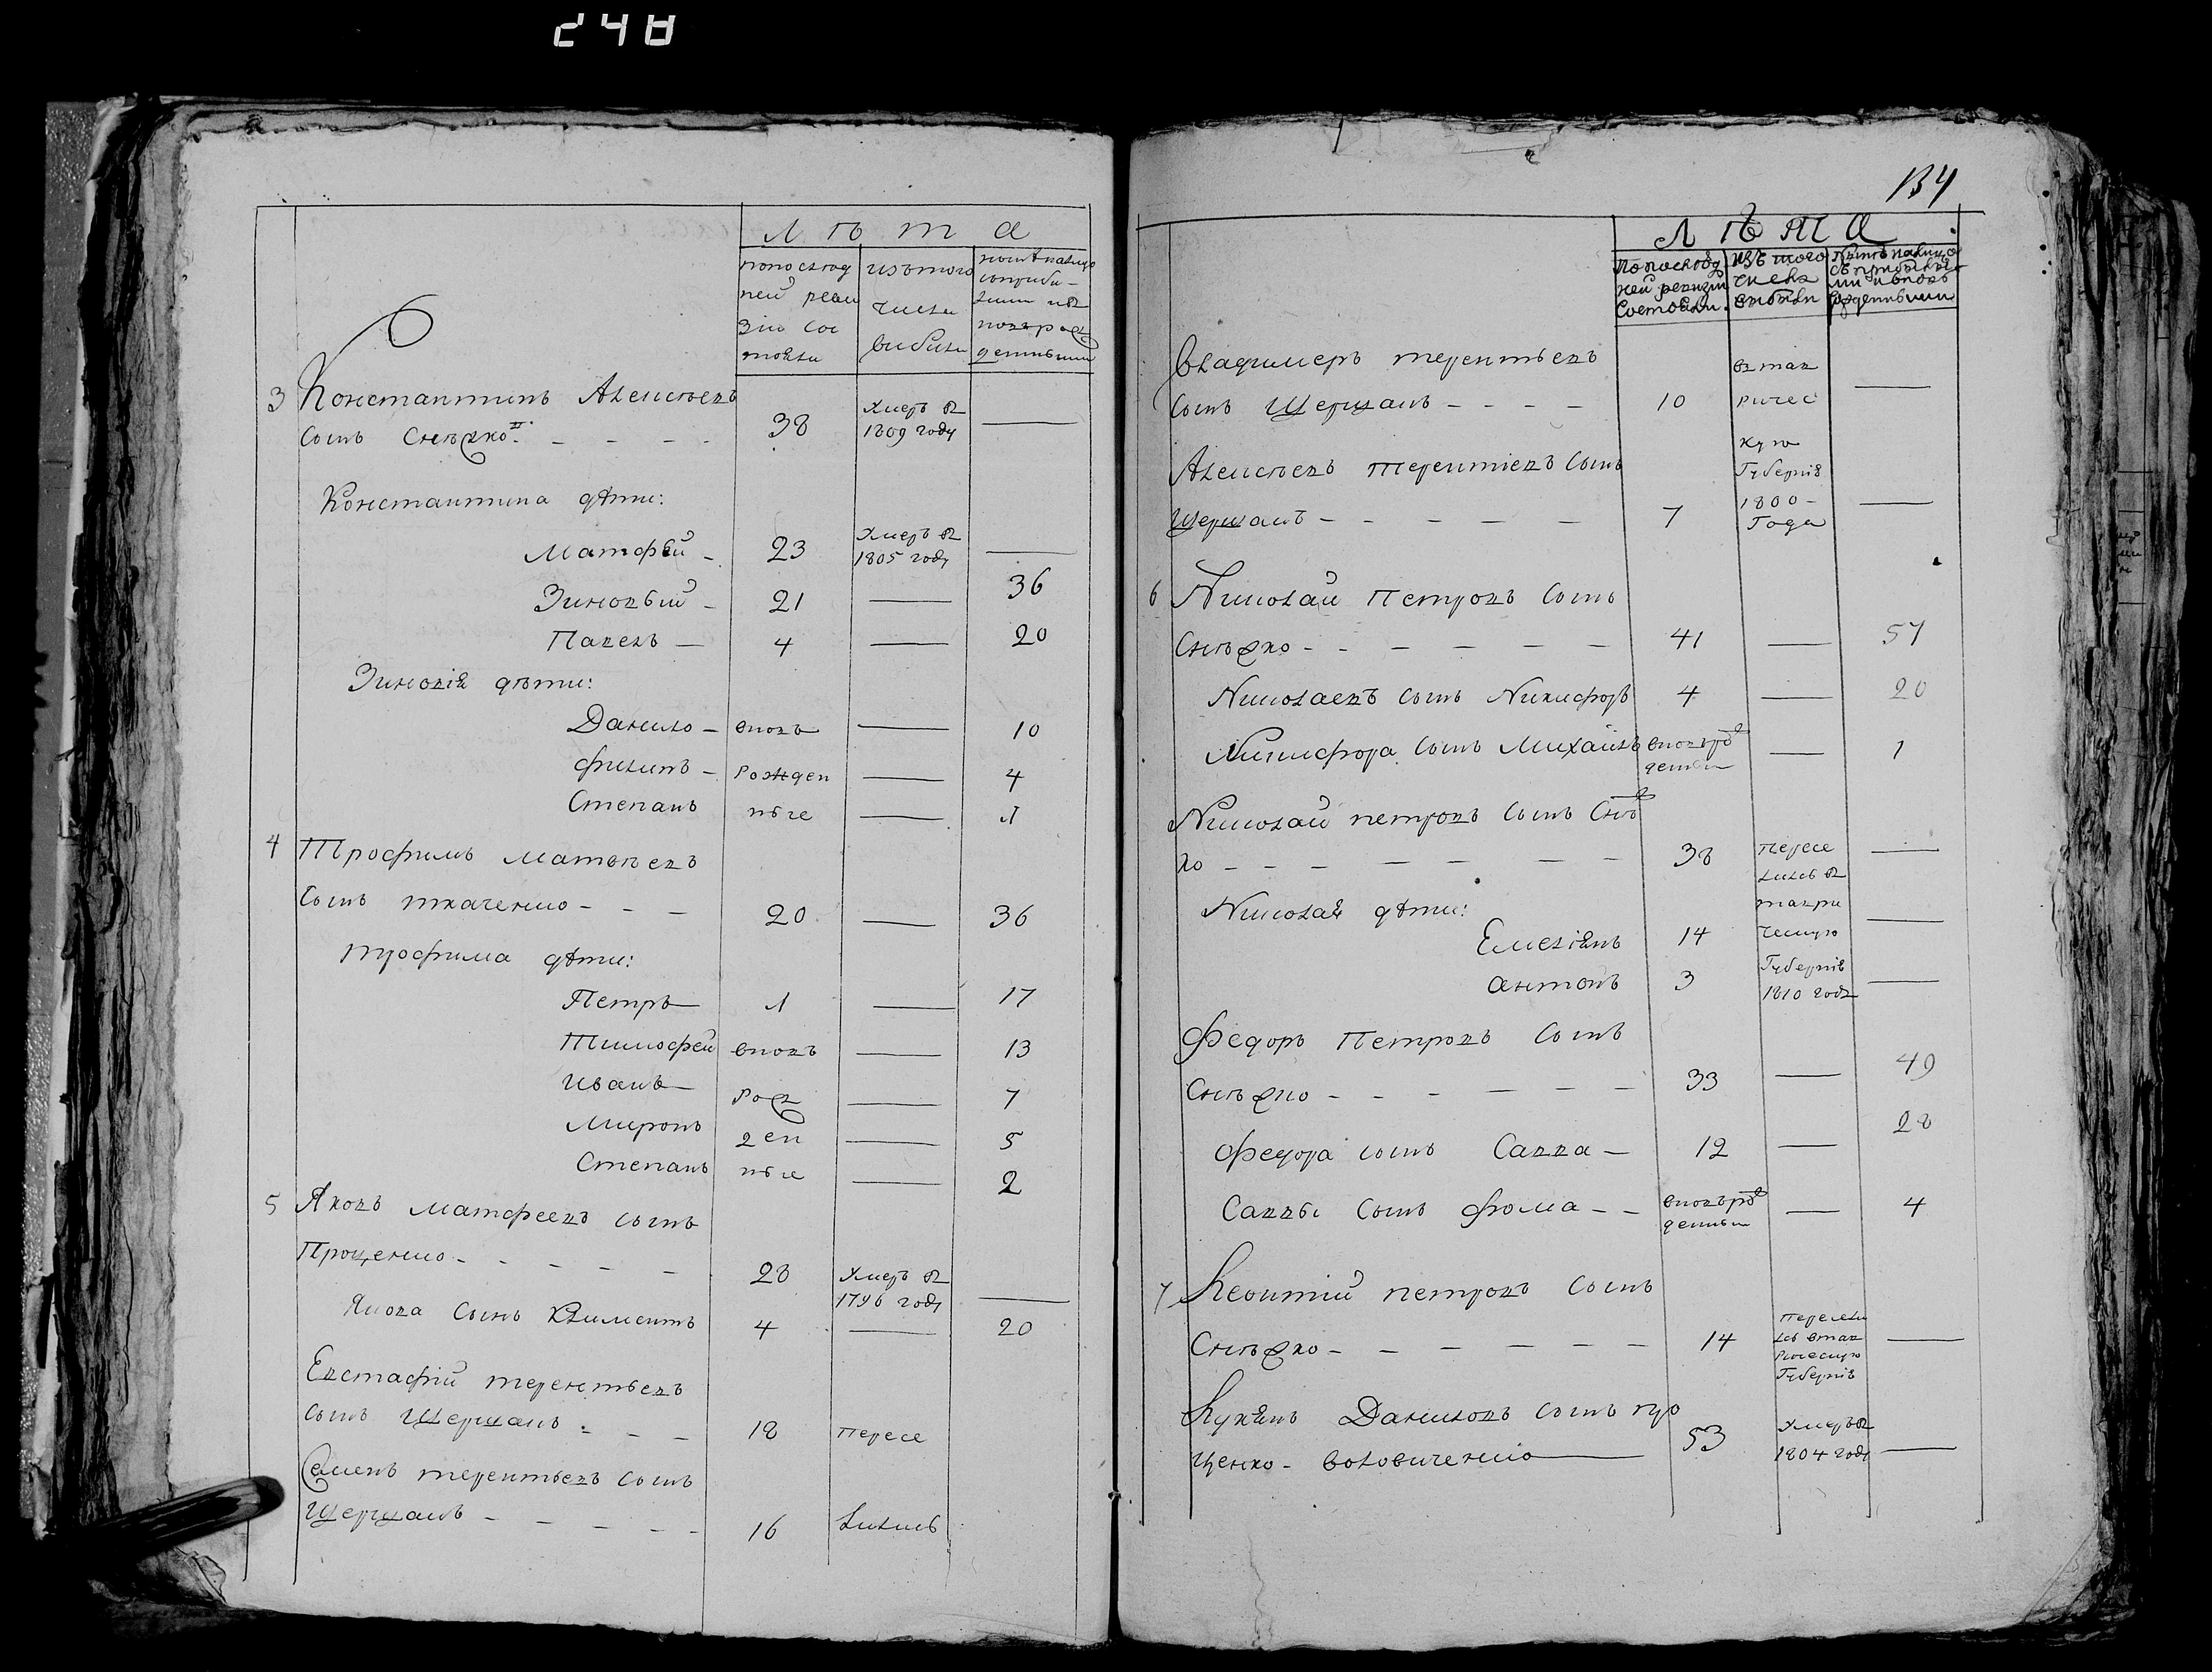 248
Лѣта
по последней ревизии состояли
изъ того числа выбыли
ныне на лицо
3 Константинъ Алексѣевъ
сынъ Снѣжко
38
Умеръ въ
1809 году
—
Константина дѣти:
Матфѣй - 23
Умеръ въ
1805 году
—
Зиновый - 21 — 36
Павелъ — 4 — 20
Зиновія дѣти:
Данило - вновь — 10
Филипъ - рожден — 4
Степанъ ные — 1
4 Трофимъ Матвѣевъ
сынъ Ткаченко - - - 20 — 36
Трофима дѣти:
Петръ 1 — 17
Тимофей вновь — 13
Иванъ рож — 7
Миронъ ден — 5
Степанъ ные — 2
5 Яковъ Матфеевъ сынъ
Проценко - - - - - 28
Умеръ въ
1796 году
—
Якова сынъ Климентъ 4 — 20
Евстафій Терентьевъ
сынъ Щербань - - - 18 пересе
Семенъ Терентьевъ сынъ
Щербань - - - - - 16 лились
134
Лѣта
По последней ревизии состояли
изъ того числа выбыли
Владимеръ Терентьевъ
сынъ Щербань - - - - 10 —
в тав
ричес
Алексѣевъ Терентіевъ сынъ
Щербань - - - - - 7 —
кую
Губернію
1800 -
Года
6 Николай Петровъ сынъ
Снѣжко - - - - - - 41 — 57
Николаевъ сынъ Никифоръ 4 — 20
Никифора сынъ Михайло вновь рож
денны — 1
Николай Петровъ сынъ Снѣж
ко - - - - - - - 38 —
Пересе
лились въ
таври
Николая дѣти:
Емеліянъ 14 ческую —
Антонъ 3
Губернію
1810 года
—
Федоръ Петровъ сынъ
Снѣжко - - - - - - 33 — 49
Федора сынъ Савва — 12 — 28
Саввы сынъ Фома - - вновь рож
денны — 4
7 Леонтій Петровъ сынъ
Снѣжко - - - - - - 14 —
пересели
лсь в тав
рическую
Губернію
Лукянъ Даниловъ сынъ
ценко - Воловиченко 53
Умеръ въ
1804 году
—